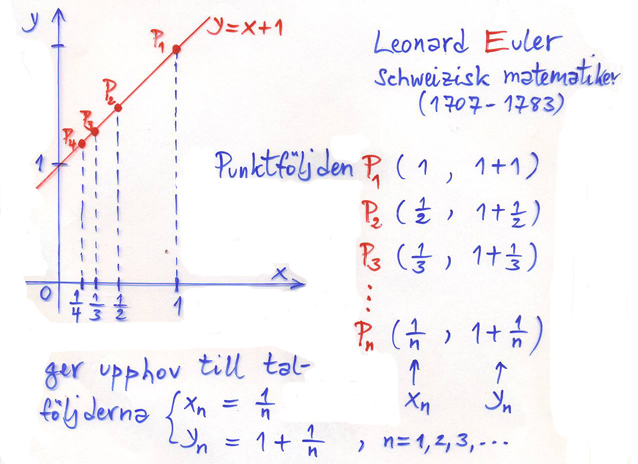 y
y = x + 1
P₁
P₂
P₃
P₄
1
x
0
1/4 1/3 1/2 1
Leonard Euler
Schweizisk matematiker
(1707 - 1783)
Punktföljden P₁ ( 1 , 1+1 )
P₂ ( 1/2 , 1+1/2 )
P₃ ( 1/3 , 1+1/3 )
⋮
Pₙ ( 1/n , 1+1/n )
↑ ↑
xₙ yₙ
ger upphov till tal-
följderna { xₙ = 1/n
yₙ = 1 + 1/n , n = 1, 2, 3, ...